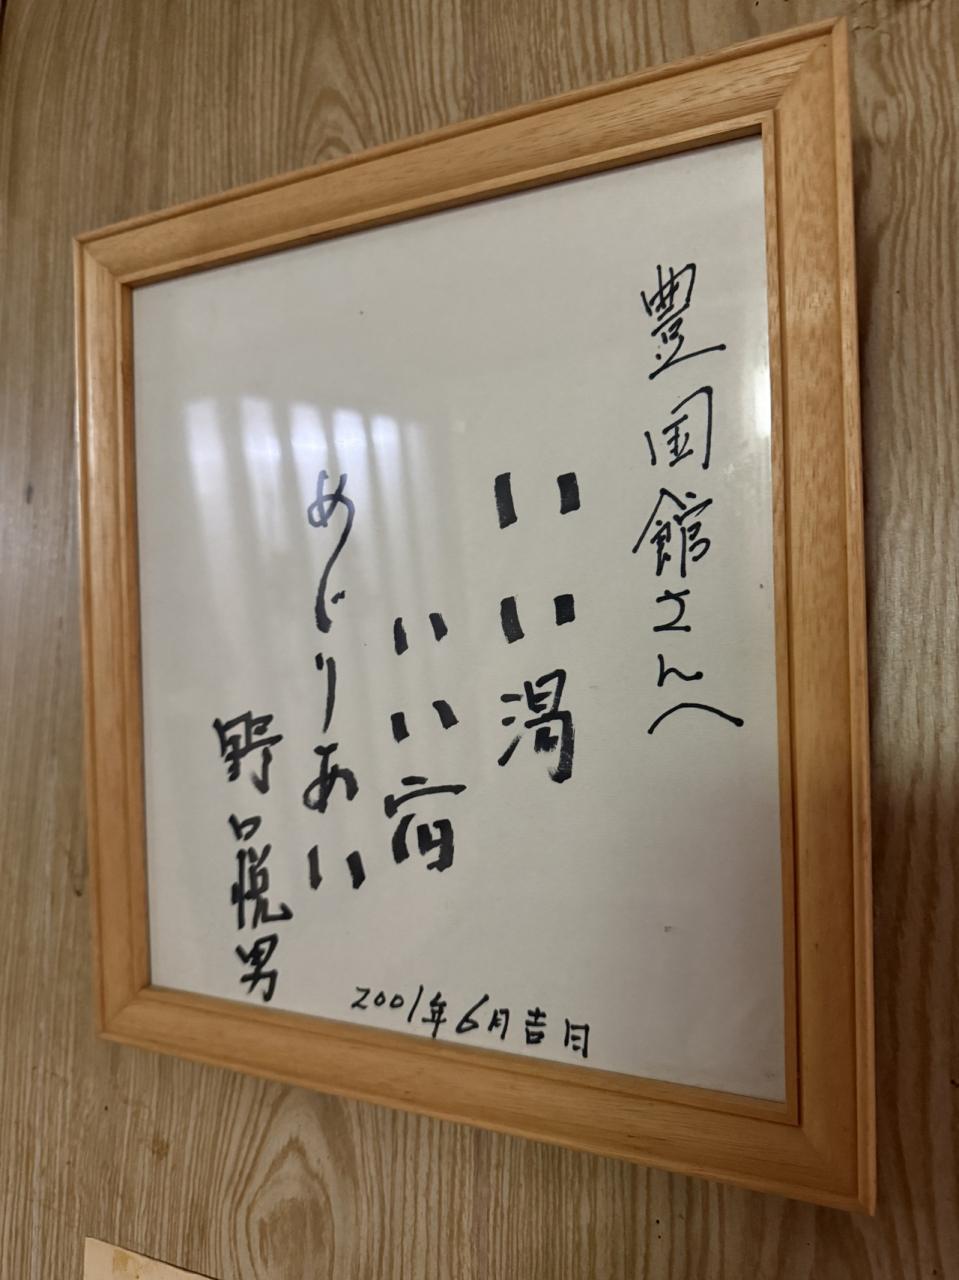 豊国館さんへ
いい湯
いい宿
めぐりあい
野口悦男
2001年6月吉日